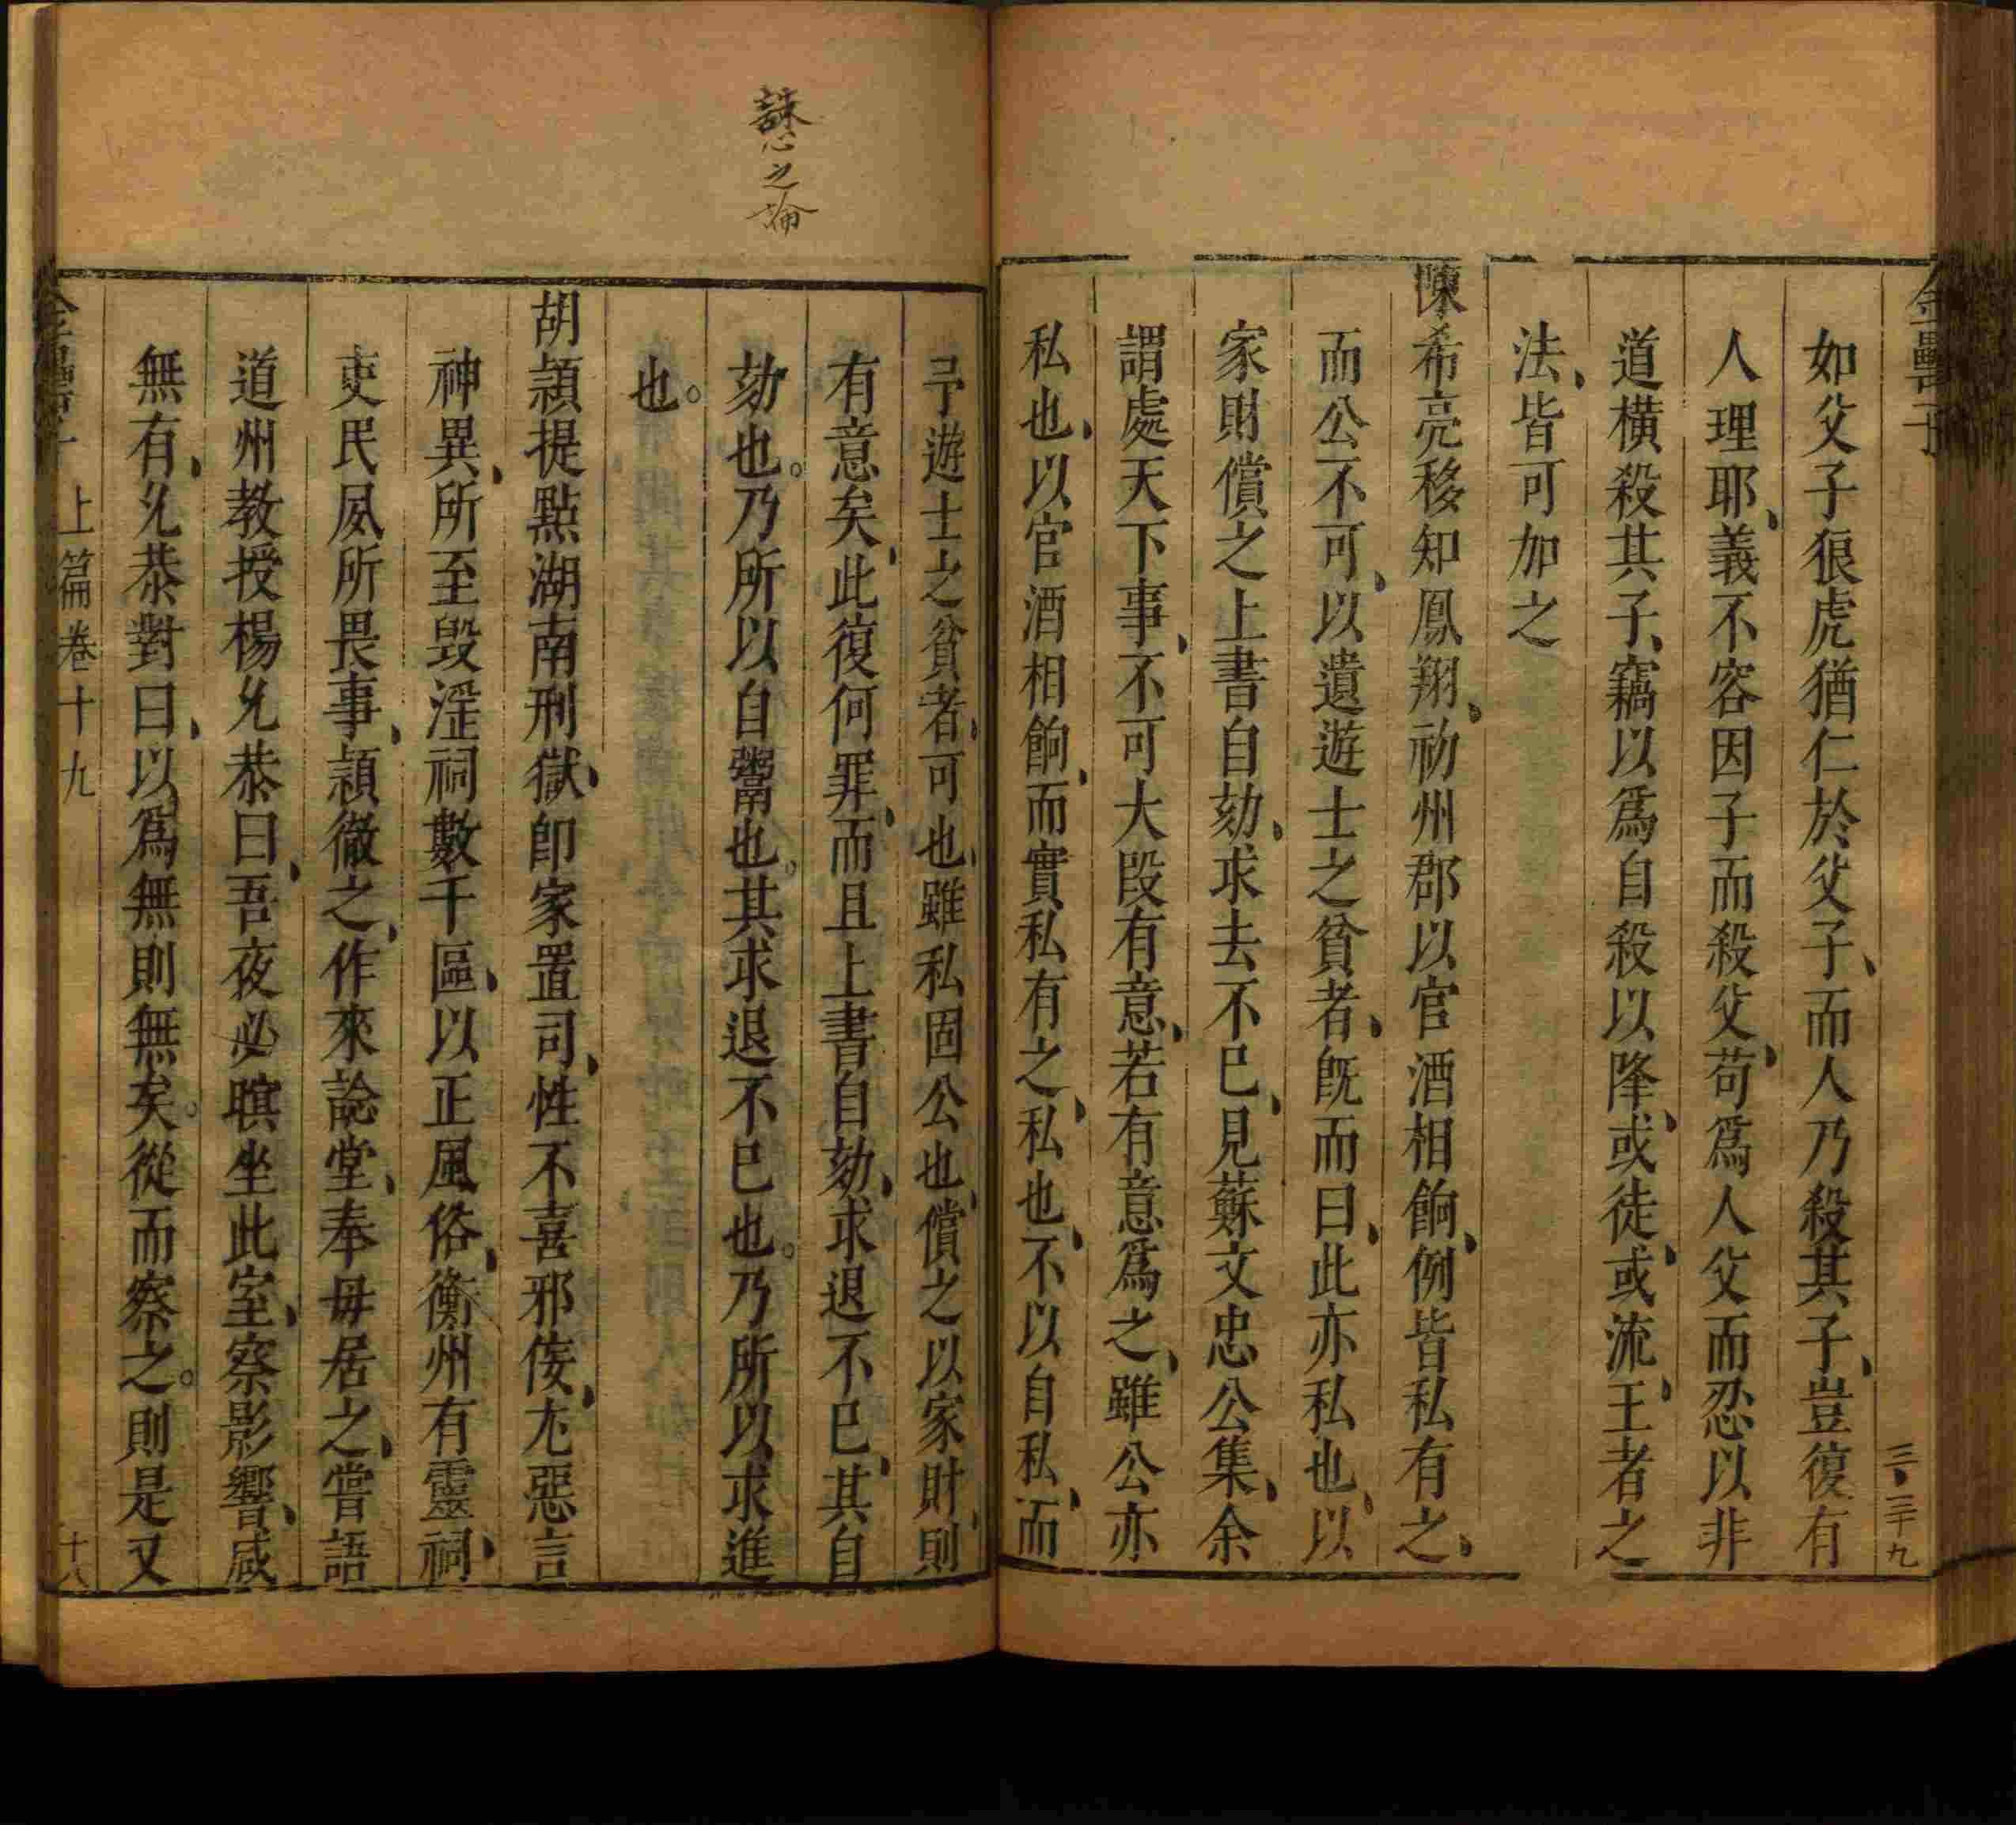 金罍子
三三十九
如父子狼虎猶仁於父子而人乃殺其子豈復有
人理耶義不容因子而殺父苟爲人父而忍以非
道橫殺其子竊以爲自殺以降或徒或流王者之
法皆可加之
陳希亮移知鳳翔初州郡以官酒相餉例皆私有之
而公不可以遺遊士之貧者旣而曰此亦私也以
家財償之上書自劾求去不已見蘇文忠公集余
謂處天下事不可大段有意若有意爲之雖公亦
私也以官酒相餉而實私有之私也不以自私而
予遊士之貧者可也雖私固公也償之以家財則
有意矣此復何罪而且上書自劾求退不已其自
劾也。乃所以自鬻也。其求退不已也。乃所以求進
也。
胡頴提點湖南刑獄卽家置司性不喜邪佞尤惡言
神異所至毀淫祠數千區以正風俗衡州有靈祠
吏民夙所畏事頴徹之作來諗堂奉母居之嘗語
道州教授楊允恭曰吾夜必瞑坐此室察影響咸
無有允恭對曰以爲無則無矣。從而察之。則是又
上篇卷十九
十八
誅心之論